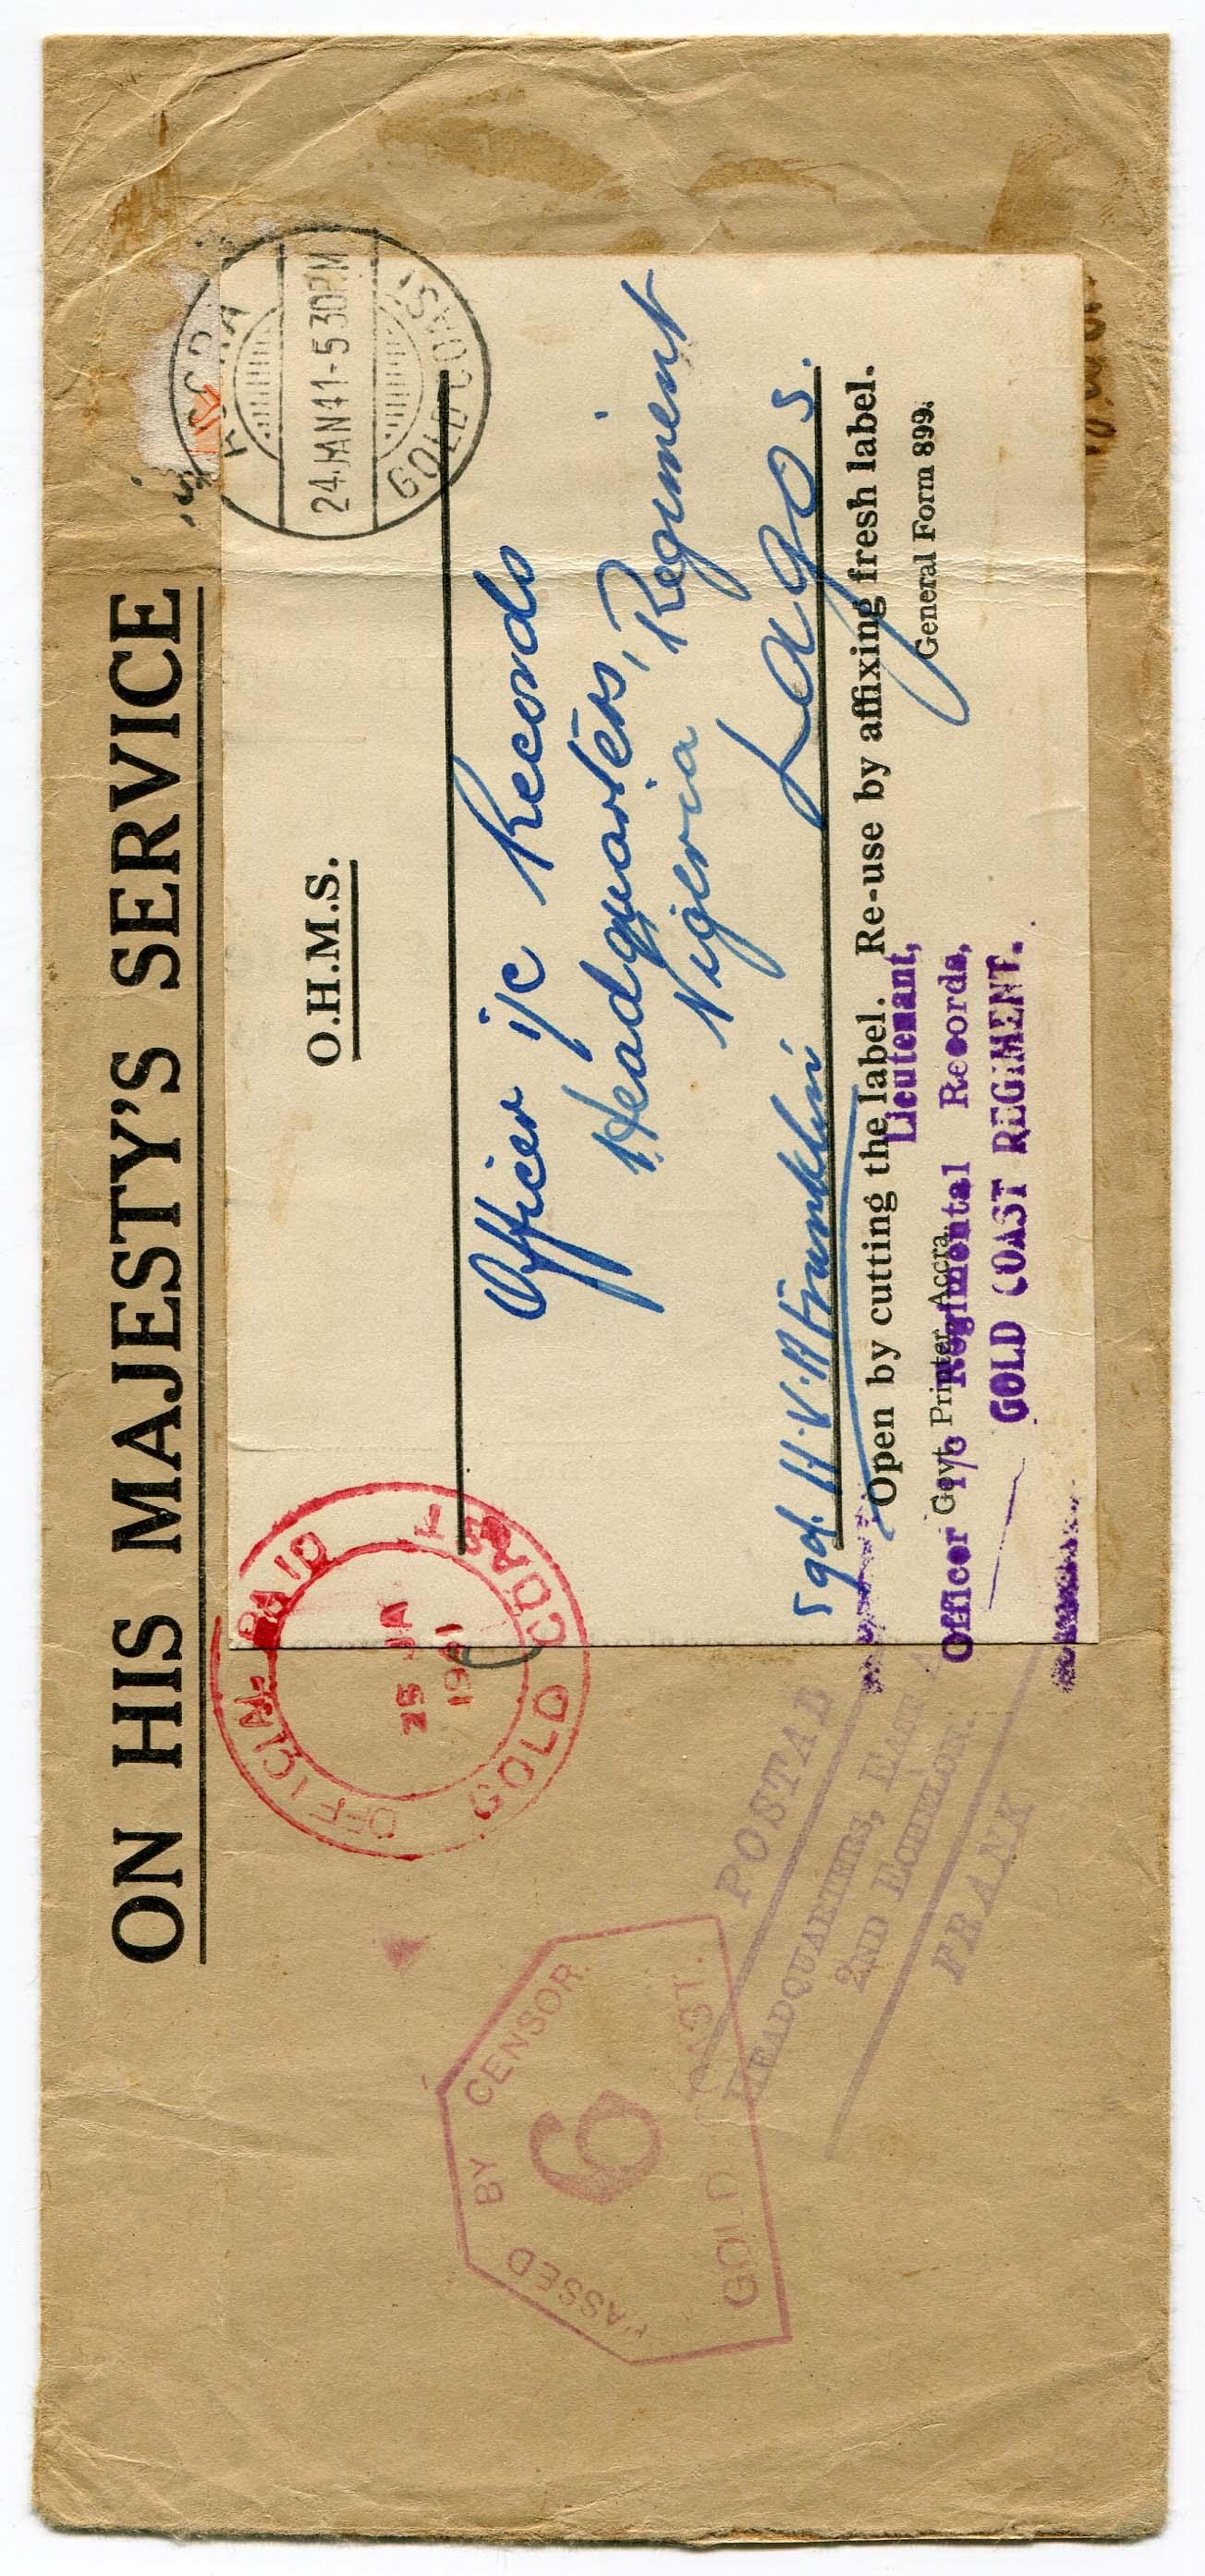 ON HIS MAJESTY'S SERVICE
ACCRA
24 JAN 41-5 30PM
GOLD COAST
OFFICIAL PAID
25 JA
1941
GOLD COAST
O.H.M.S.
Officer i/c Records
Headquarters,
Nigeria Regiment
Lagos.
Sgd. H.V.A Franklin
Open by cutting the label. Re-use by affixing fresh label.
Govt. Printer, Accra.
General Form 899.
Lieutenant,
Officer i/c Regimental Records,
GOLD COAST REGIMENT.
PASSED BY CENSOR.
6
GOLD COAST.
POSTAL
HEADQUARTERS, EAST
2ND ECHELON.
FRANK